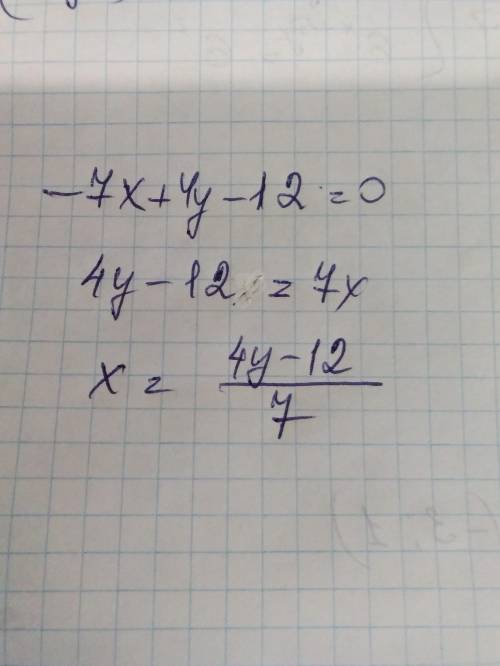 -7x+4y-12=0
4y-12=7x
x = \frac{4y-12}{7}